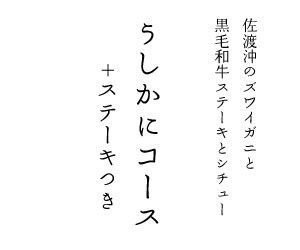 佐渡沖のズワイガニと
黒毛和牛ステーキとシチュー
うしかにコース
＋ステーキつき